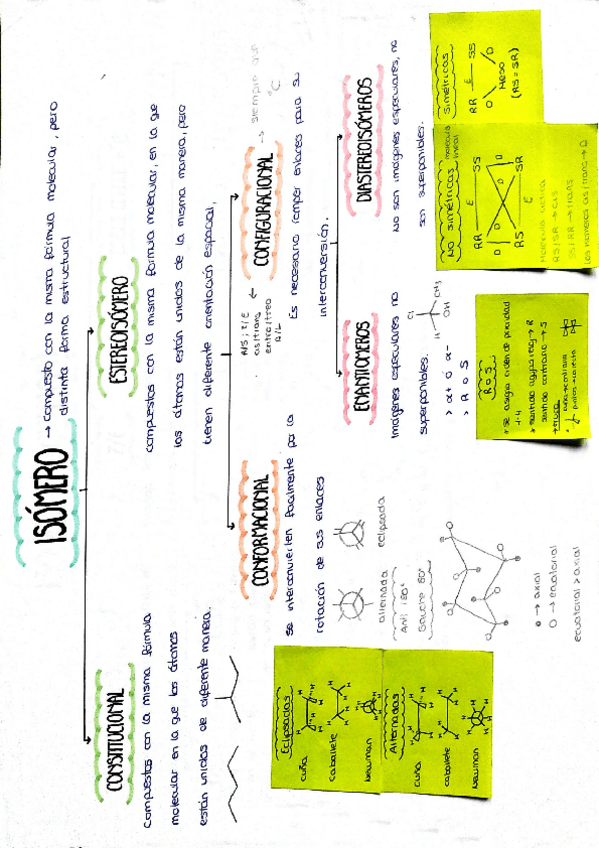 ISÓMERO
→ compuesto con la misma fórmula molecular, pero
distinta forma estructural
CONSTITUCIONAL
Compuestos con la misma fórmula
molecular en la que los átomos
están unidos de diferente manera.
ESTEREOISÓMERO
compuestos con la misma fórmula molecular, en la que
los átomos están unidos de la misma manera, pero
tienen diferente orientación espacial.
CONFORMACIONAL
se interconvierten facilmente por la
rotación de sus enlaces
alternada
eclipsada
Anti 180°
Gauche 60°
→ axial
O → ecuatorial
ecuatorial > axial
Eclipsadas
cuña
caballete
Newman
Alternadas
cuña
caballete
Newman
cis/trans
CONFIGURACIONAL
→ siempre
Es necesario romper enlaces para su
interconversión.
ENANTIÓMEROS
Imágenes especulares no
superponibles.
> R o S
CH3
H
OH
R o S
• se asigna orden de prioridad
1-4
→ R
sentido contrario → S
DIASTEREOISÓMEROS
No son imágenes especulares, no
son superponibles.
No simétricas
molécula
lineal
RR
E
SS
D
D
RS
E
SR
Molécula cíclica
RS/SR → cis
SS/RR → trans
cis/trans → D
Simétricas
RR
E
SS
D
D
Meso
(RS = SR)